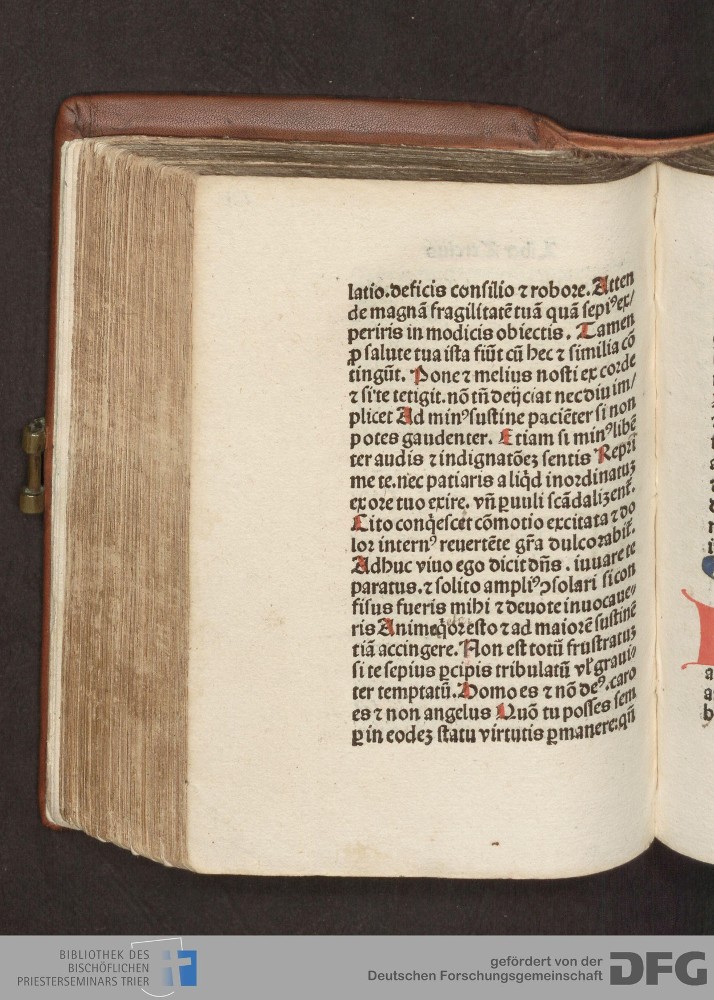 latio.deficis consilio ⁊ robore. Atten
de magnā fragilitatē tuā quā sepiꝰ ex/
periris in modicis obiectis. Tamen
ꝓ salute tua ista fiūt cū hec ⁊ similia cō
tingūt. Pone ⁊ melius nosti ex corde
⁊ si te tetigit. nō tn̄ deijciat nec diu im/
plicet Ad minꝰ sustine paciēter si non
potes gaudenter. Etiam si minꝰ libē
ter audis ⁊ indignatōeꝫ sentis Repri
me te. nec patiaris aliq̄d inordinatuꝫ
ex ore tuo exire. vn̄ ꝑuuli scādalizent̄.
Cito conq̄escet cōmotio excitata ⁊ do
lor internꝰ reuertēte gr̄a dulcorabit̄.
Adhuc viuo ego dicit dn̄s. iuuare te
paratus. ⁊ solito ampliꝰ ꝯsolari si con
fisus fueris mihi ⁊ deuote inuocaue//
ris Animeq̄or esto ⁊ ad maiorē sustinē
tiā accingere. Non est totū frustratuꝫ
si te sepius ꝑcipis tribulatū vl̄ graui//
ter temptatū. Homo es ⁊ nō deꝰ. caro
es ⁊ non angelus Quō tu posses sem
ꝑ in eodeꝫ statu virtutis ꝑmanere: qn̄
BIBLIOTHEK DES
BISCHÖFLICHEN
PRIESTERSEMINARS TRIER
gefördert von der
Deutschen Forschungsgemeinschaft
DFG